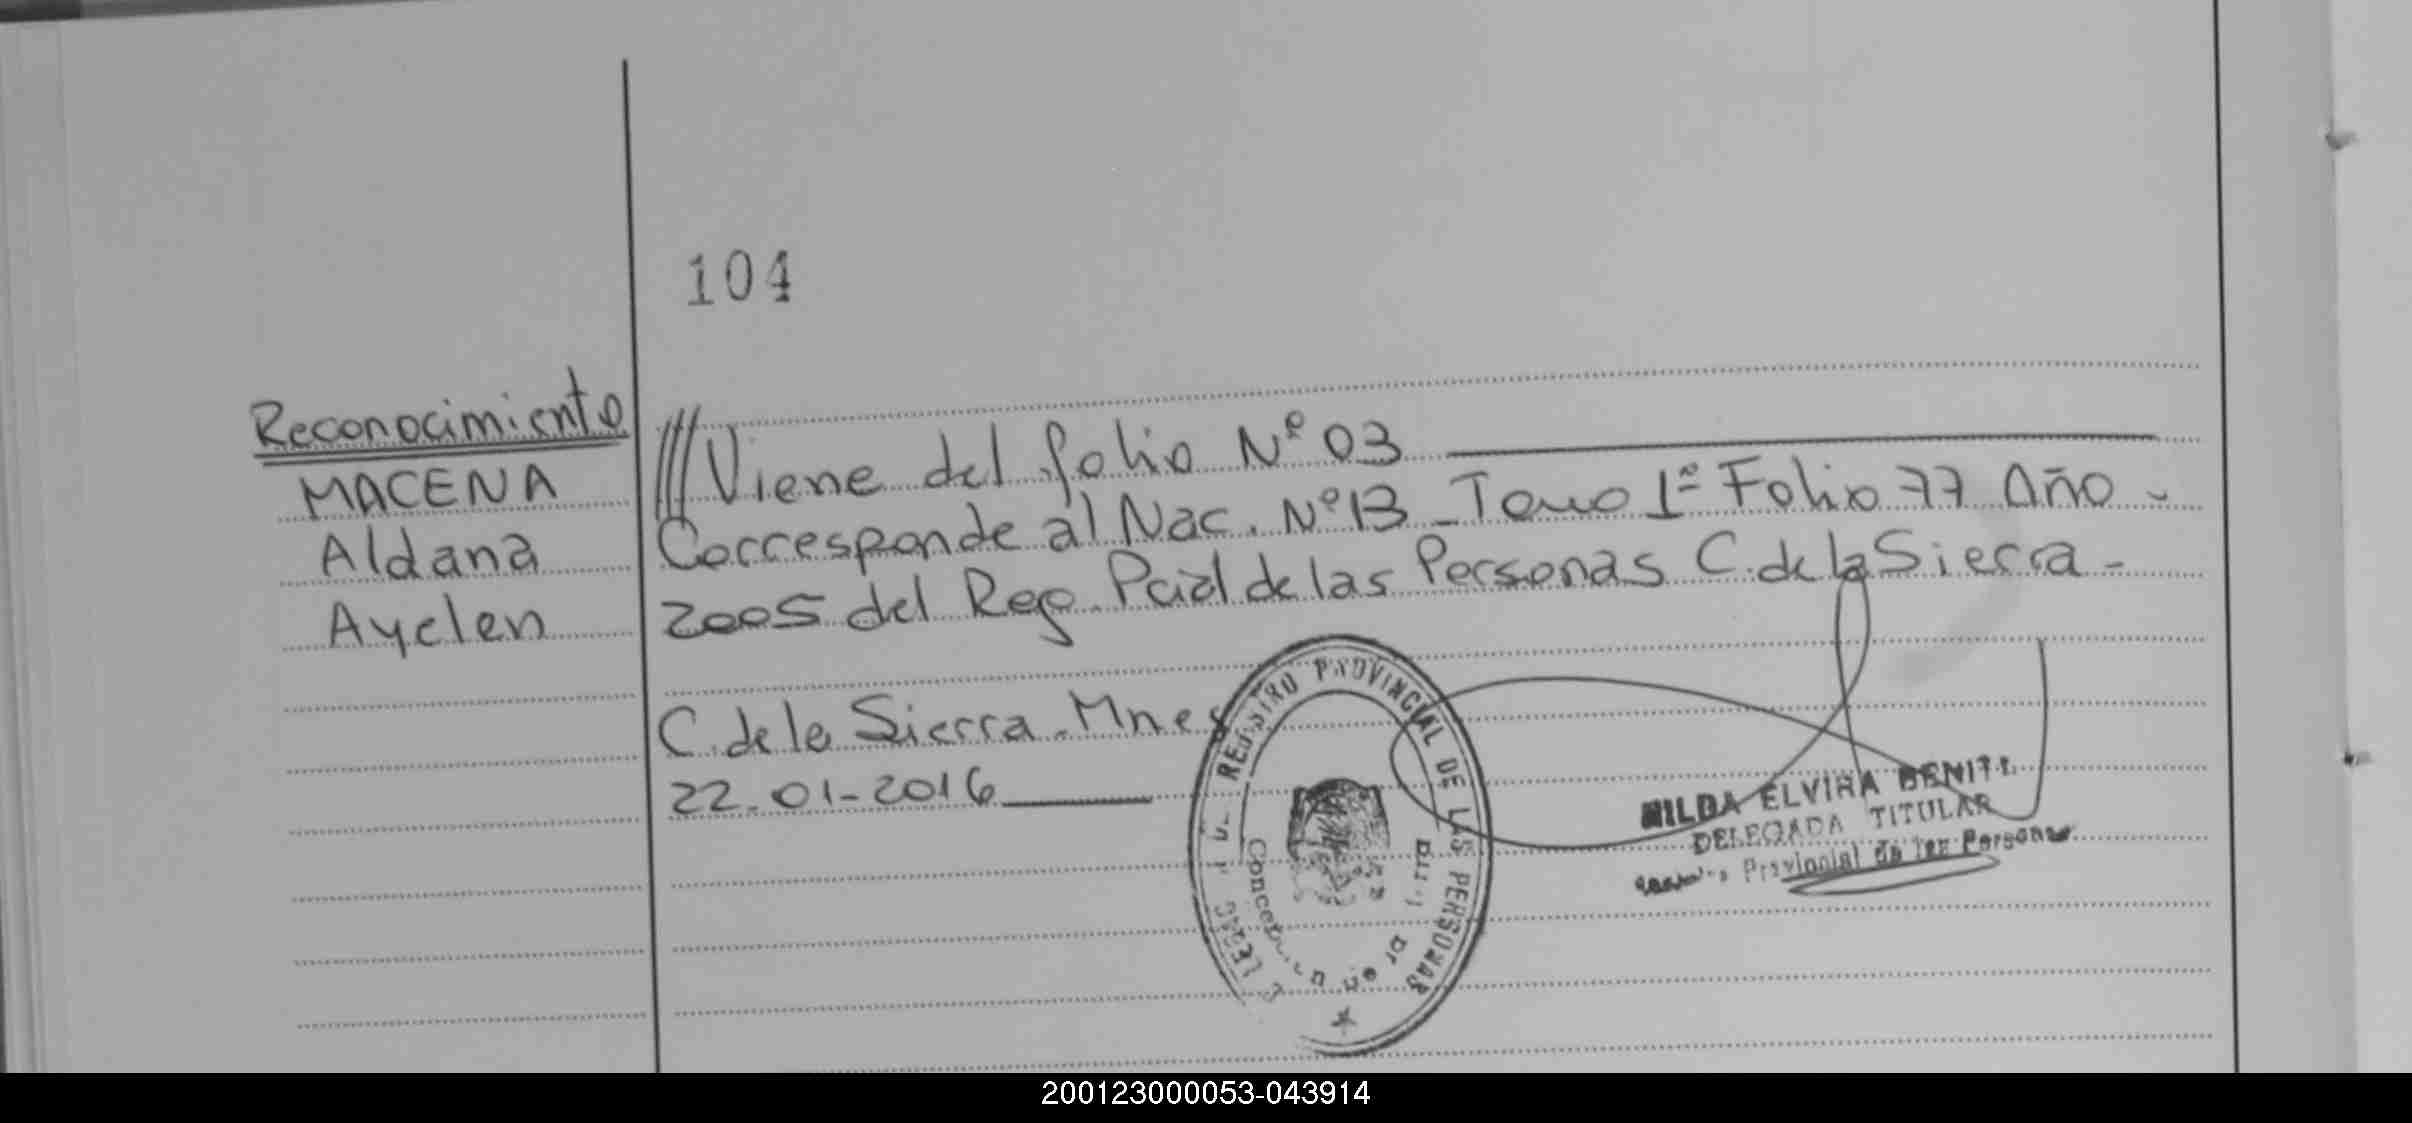 104
Reconocimiento
MACENA
Aldana
Ayelen
///Viene del folio Nº 03
Corresponde al Nac. Nº 13 - Tomo 1º Folio 77 Año -
2005 del Reg. Pcial de las Personas C. de la Sierra -
C. de la Sierra. Mnes
22-01-2016
REGISTRO PROVINCIAL DE LAS PERSONAS
HILDA ELVIRA
DELEGADA TITULAR
Provincial de las Personas
200123000053-043914